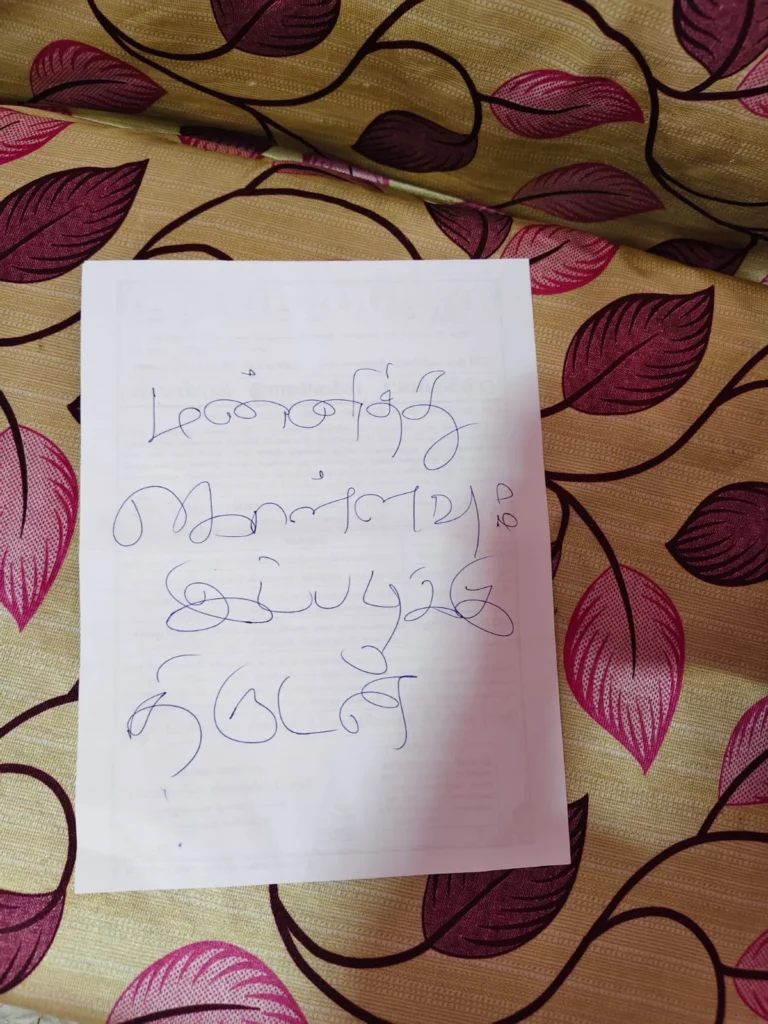 மன்னித்து
கொள்ளவும்
இப்படிக்கு
திருடன்